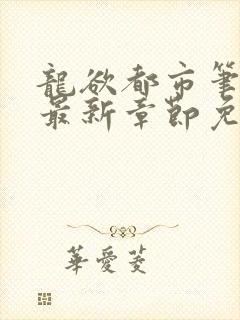 龍欲都市筆
最新章節免
華愛菱